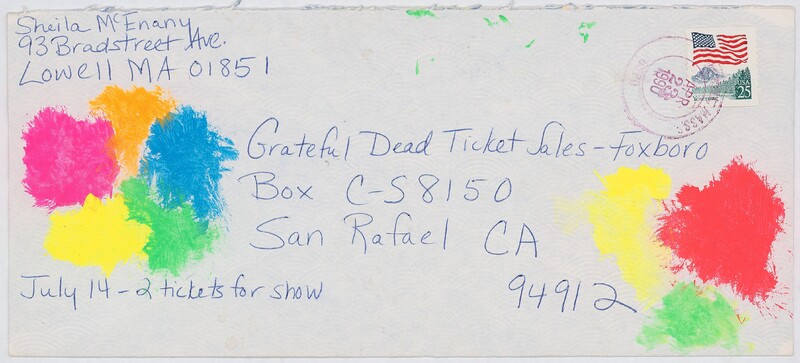 Sheila McEnany
93 Bradstreet Ave.
Lowell MA 01851
USA
25
APR
23
1990
MASS
Grateful Dead Ticket Sales - Foxboro
Box C-S8150
San Rafael CA
94912
July 14 - 2 tickets for show